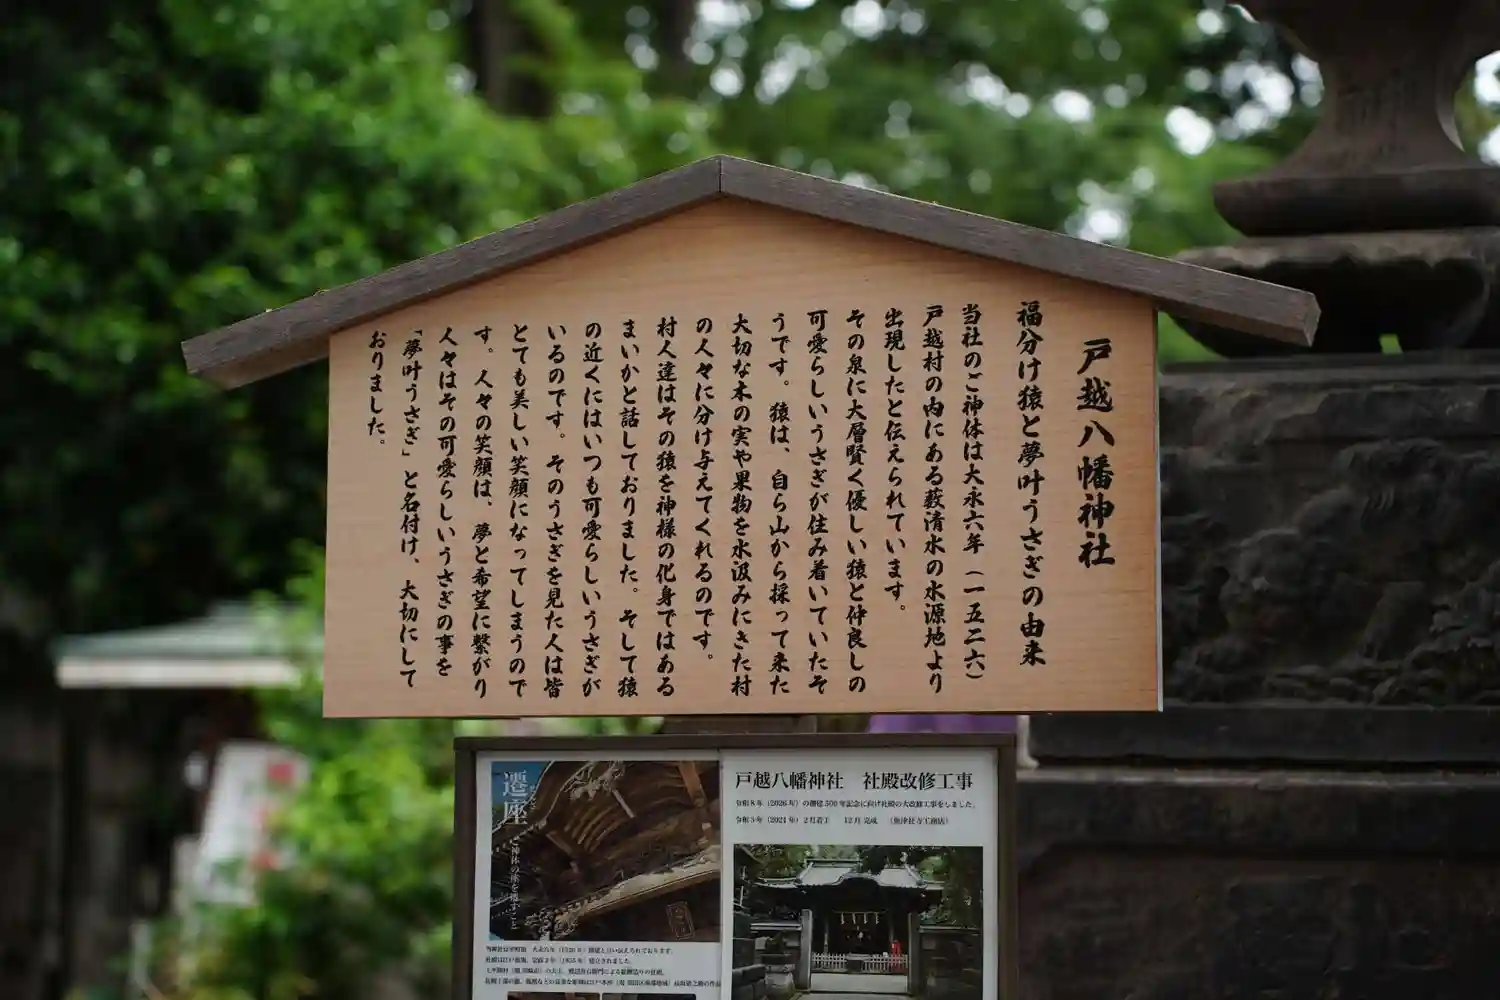 戸越八幡神社
福分け猿と夢叶うさぎの由来
当社のご神体は大永六年(一五二六)
戸越村の内にある藪清水の水源地より
出現したと伝えられています。
その泉に大層賢く優しい猿と仲良しの
可愛らしいうさぎが住み着いていたそ
うです。猿は、自ら山から採って来た
大切な木の実や果物を水汲みにきた村
の人々に分け与えてくれるのです。
村人達はその猿を神様の化身ではある
まいかと話しておりました。そして猿
の近くにはいつも可愛らしいうさぎが
いるのです。そのうさぎを見た人は皆
とても美しい笑顔になってしまうので
す。人々の笑顔は、夢と希望に繋がり
人々はその可愛らしいうさぎの事を
「夢叶うさぎ」と名付け、大切にして
おりました。
遷座
ご神体の座を遷すこと
戸越八幡神社 社殿改修工事
令和8年(2026年)の創建500年記念に向け社殿の大改修工事をしました。
令和3年(2021年)2月着工 12月完成